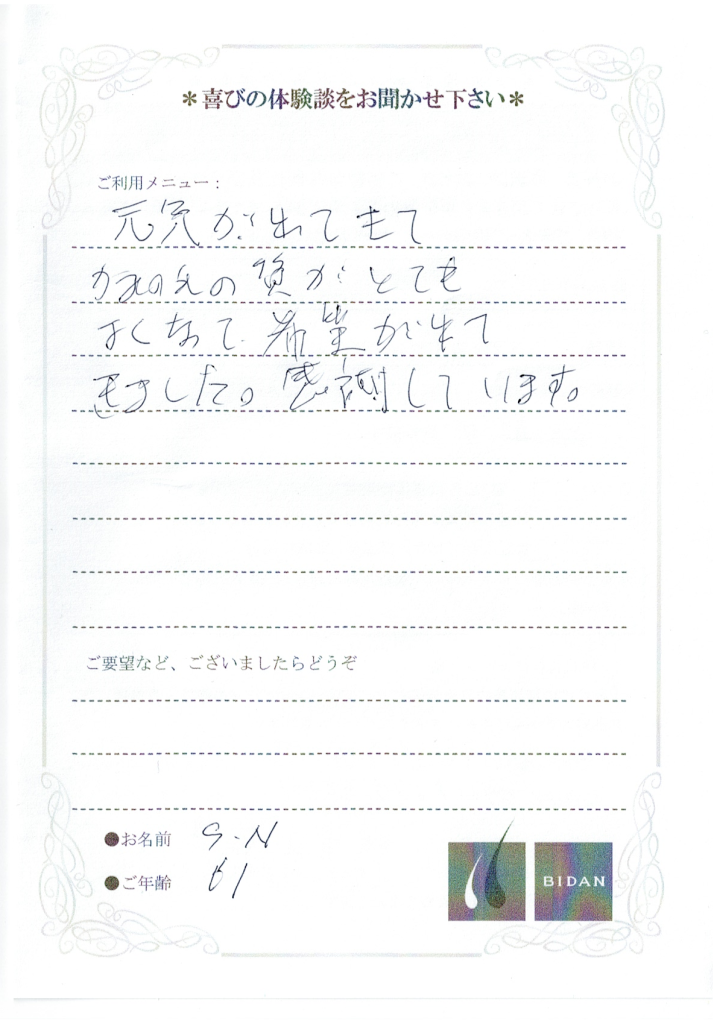 ＊喜びの体験談をお聞かせ下さい＊
ご利用メニュー：
元気が出てきて
かみの毛の質がとても
よくなって、希望が出て
きました。感謝しています。
ご要望など、ございましたらどうぞ
●お名前 S.N
●ご年齢 61
BIDAN